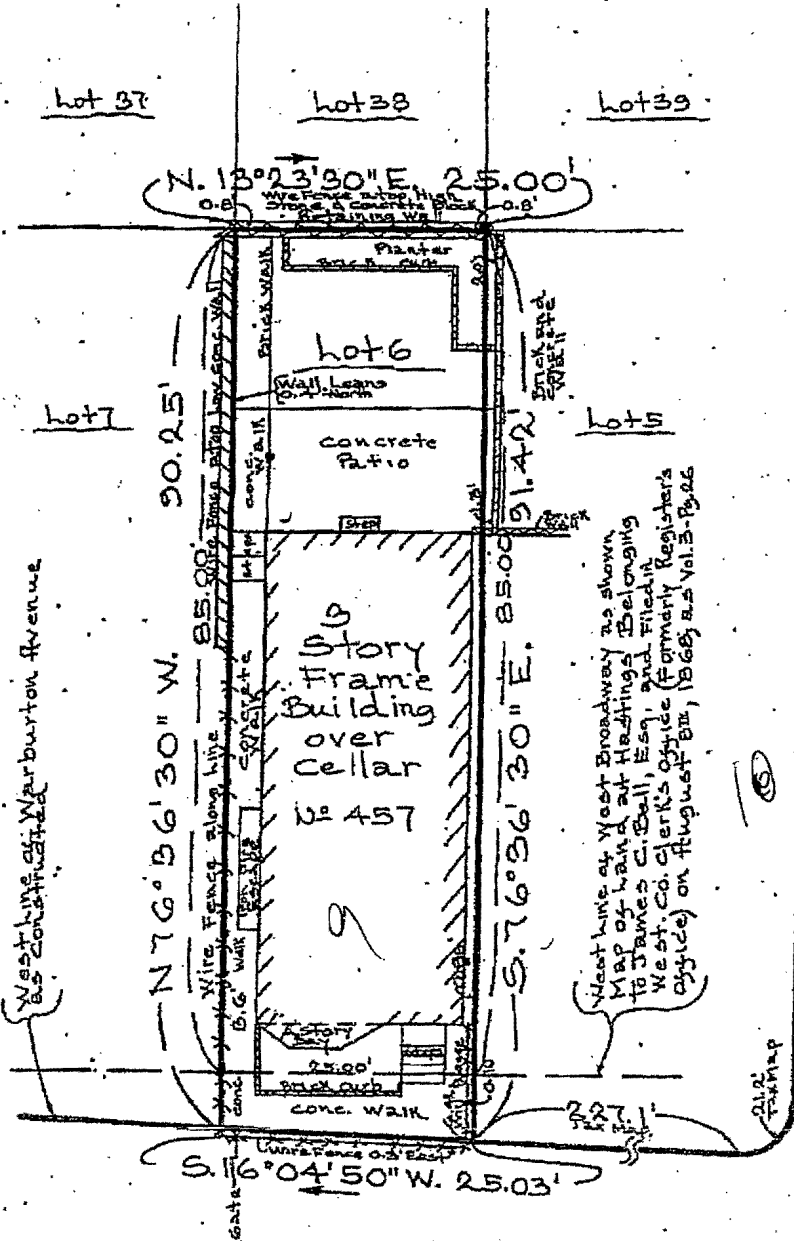 Lot 37
Lot 38
Lot 39
N. 13°23'30" E. 25.00'
Wire Fence atop High
Stone & Concrete Block
Retaining Wall
0.8'
0.8'
Planter
Brick Curb
2.0'
Brick Walk
Lot 6
Wall Leans
North
Brick and
Concrete
Wall
Lot 7
Lot 5
90.25'
91.42'
Wire Fence atop low conc. Wall
conc.
Walk
Concrete
Patio
Step
Brick
Wall
85.00'
85.00'
steps
3
Story
Frame
Building
over
Cellar
No 457
9
Concrete
Walk
Wire Fence along line
N 76°36'30" W.
S. 76°36'30" E.
West line of Warburton Avenue
as Constructed
West line of West Broadway as shown
Map of Land at Hastings Belonging
to James C. Bell, Esq., and Filed in
West. Co. Clerk's Office (Formerly Register's
Office) on August 8th, 1868, as Vol. 3-Pg. 26
Walk
Story
Bay
25.00'
Brick Curb
conc.
conc. Walk
Steps
227.1'
Tax Map
21.2'
Tax Map
Wire Fence 0.3' East
S. 16°04'50" W. 25.03'
Gate